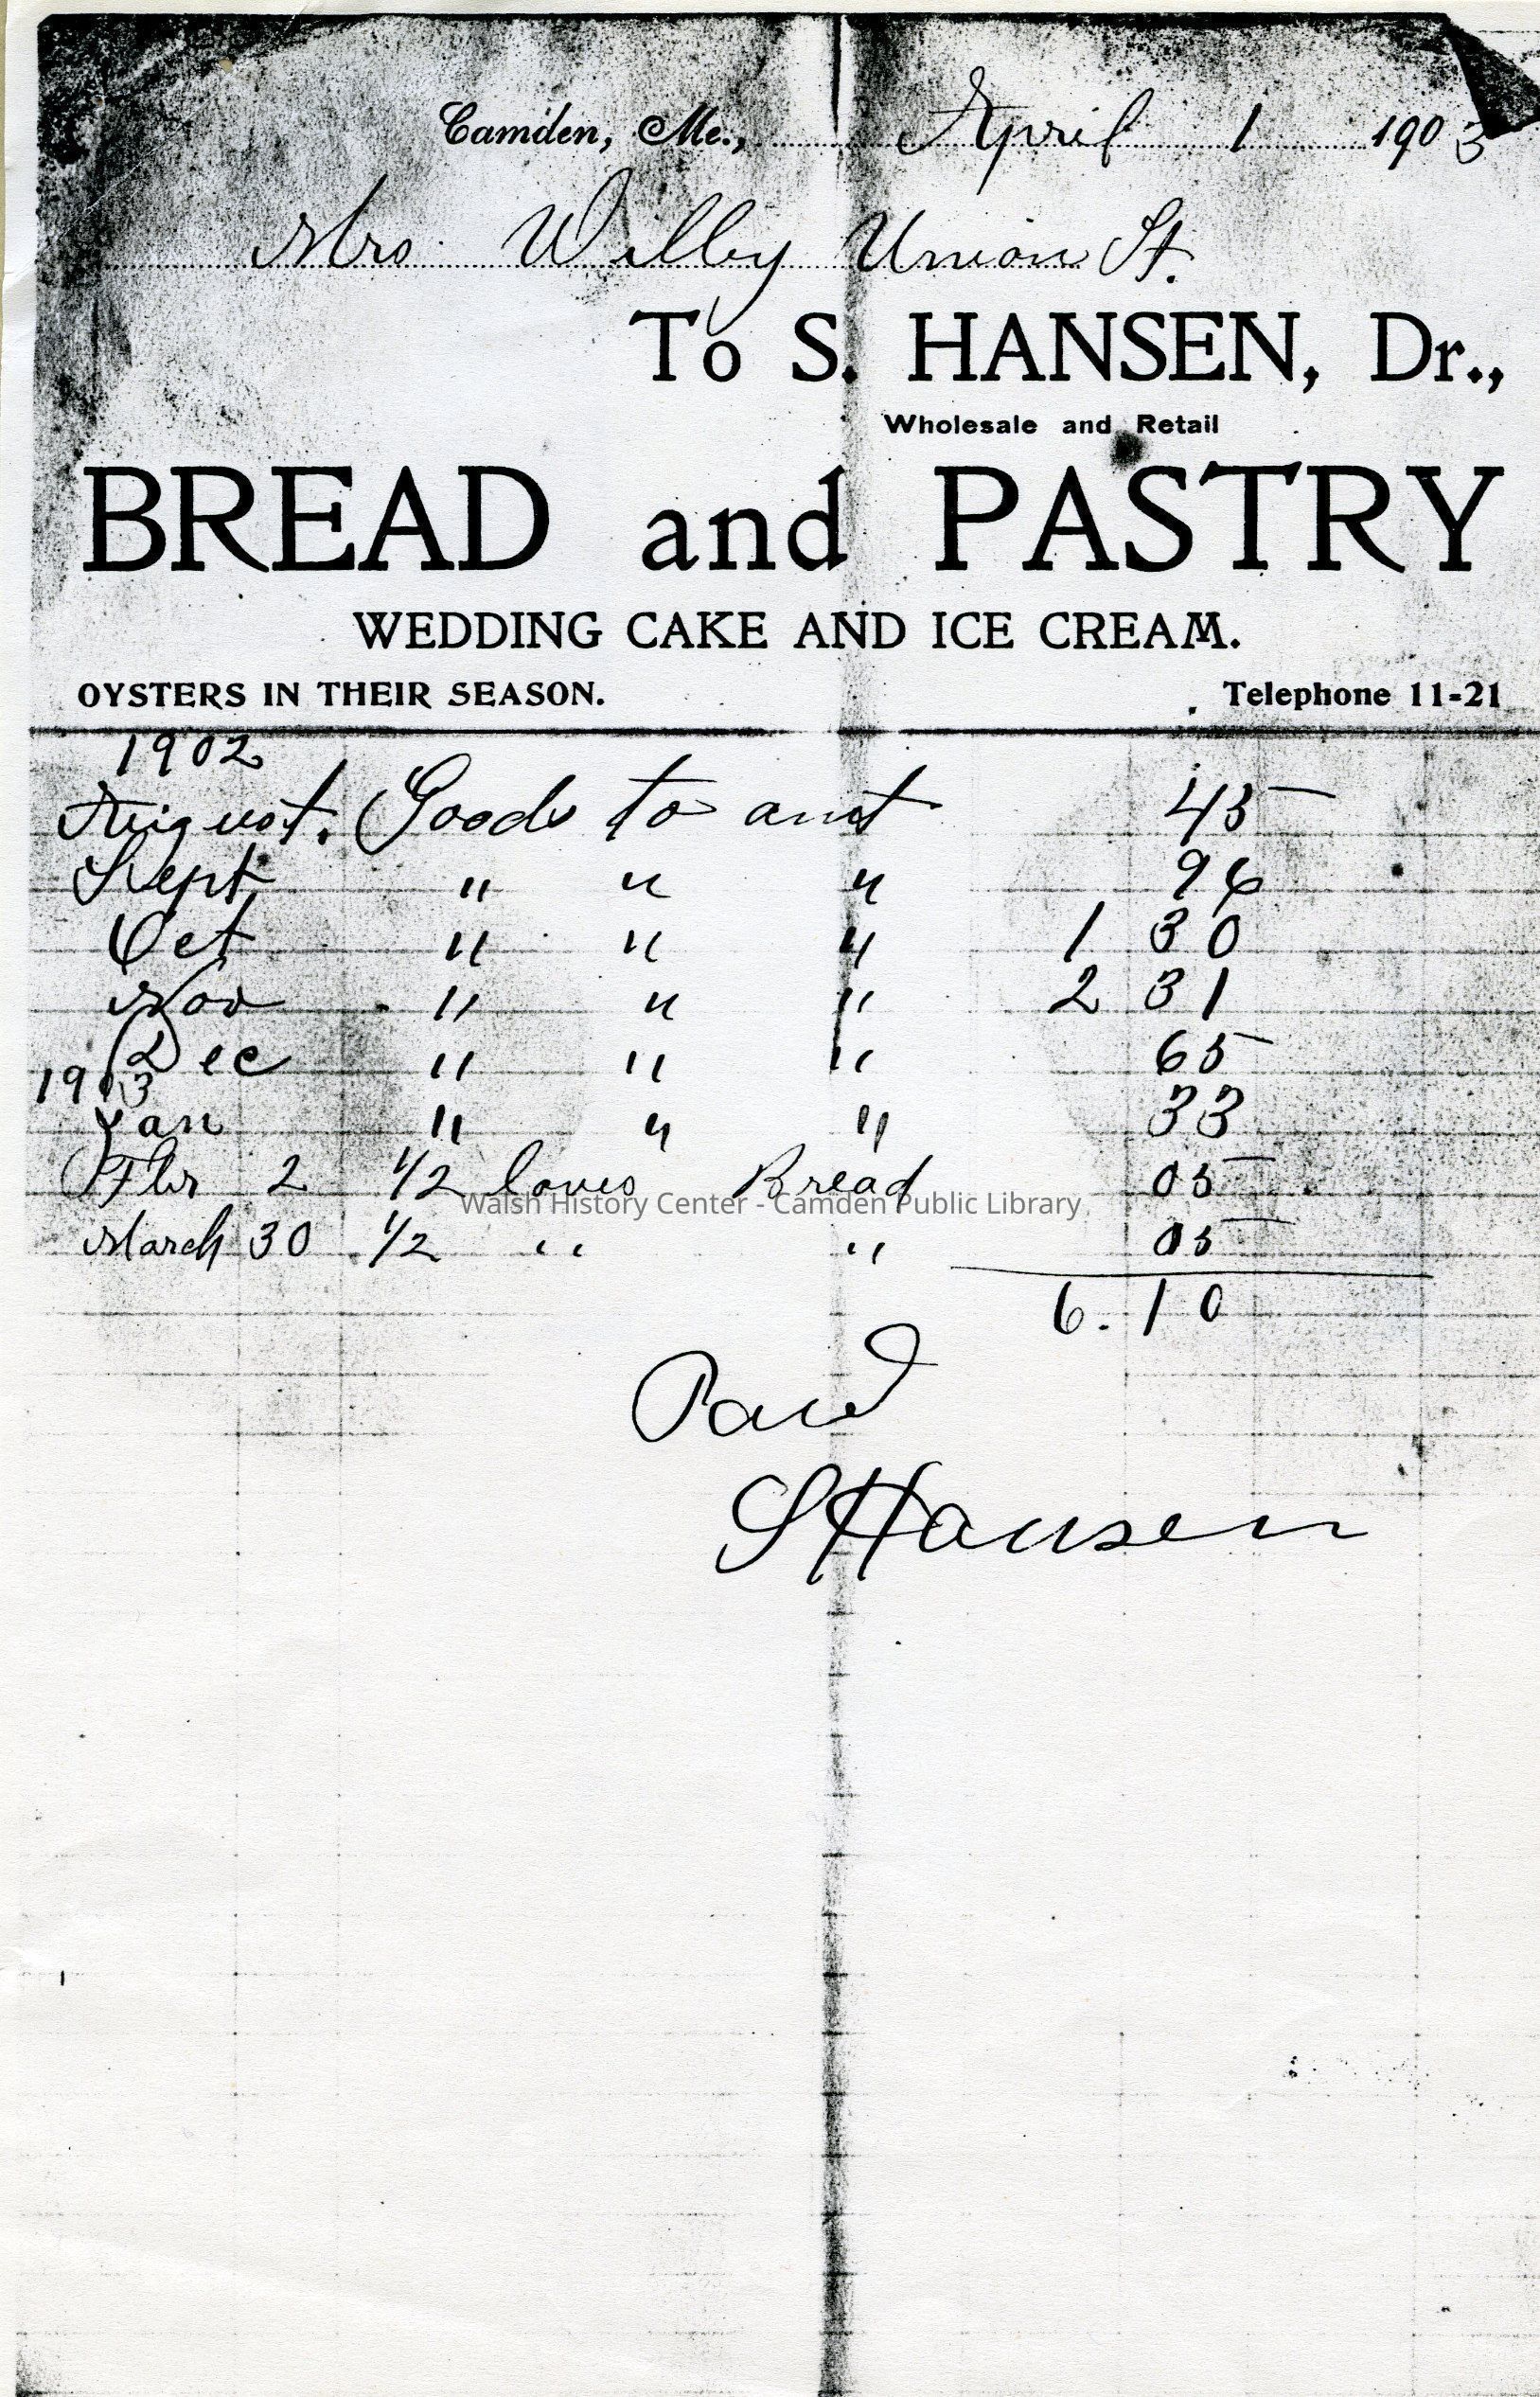 Camden, Me., April 1 1903
Mrs. Wilby Union St.
To S. HANSEN, Dr.,
Wholesale and Retail
BREAD and PASTRY
WEDDING CAKE AND ICE CREAM.
OYSTERS IN THEIR SEASON. Telephone 11-21
1902
August. Goods to amt 45
Sept " " " 96
Oct " " " 1 30
Nov " " " 2 31
Dec " " " 65
1903
Jan " " " 33
Fbr 2 1/2 loves Bread 05
Walsh History Center - Camden Public Library
March 30 1/2 " " 05
6.10
Paid
SHansen